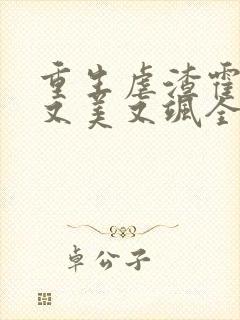 重生虐渣霍
又美又飒全
卓公子